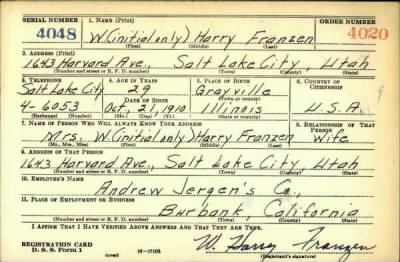 SERIAL NUMBER 1. NAME (Print) ORDER NUMBER
4048 W(initial only) Harry Franzen 4020
(First) (Middle) (Last)
2. ADDRESS (Print)
1643 Harvard Ave., Salt Lake City, Utah
(Number and street or R. F. D. number) (Town) (County) (State)
3. TELEPHONE 4. AGE IN YEARS 5. PLACE OF BIRTH 6. COUNTRY OF CITIZENSHIP
Salt Lake City 29 Grayville
DATE OF BIRTH (Town or county)
4-6053 Oct. 21, 1910 Illinois U.S.A.
(Exchange) (Number) (Mo.) (Day) (Yr.) (State or country)
7. NAME OF PERSON WHO WILL ALWAYS KNOW YOUR ADDRESS 8. RELATIONSHIP OF THAT PERSON
Mrs. W.(initial only) Harry Franzen Wife
(Mr., Mrs., Miss) (First) (Middle) (Last)
9. ADDRESS OF THAT PERSON
1643 Harvard Ave., Salt Lake City, Utah
(Number and street or R. F. D. number) (Town) (County) (State)
10. EMPLOYER'S NAME
Andrew Jergen's Co.,
11. PLACE OF EMPLOYMENT OR BUSINESS
Burbank, California
(Number and street or R. F. D. number) (Town) (County) (State)
I AFFIRM THAT I HAVE VERIFIED ABOVE ANSWERS AND THAT THEY ARE TRUE.
REGISTRATION CARD W. Harry Franzen
D. S. S. Form 1 (over) 16—17105 (Registrant's signature)